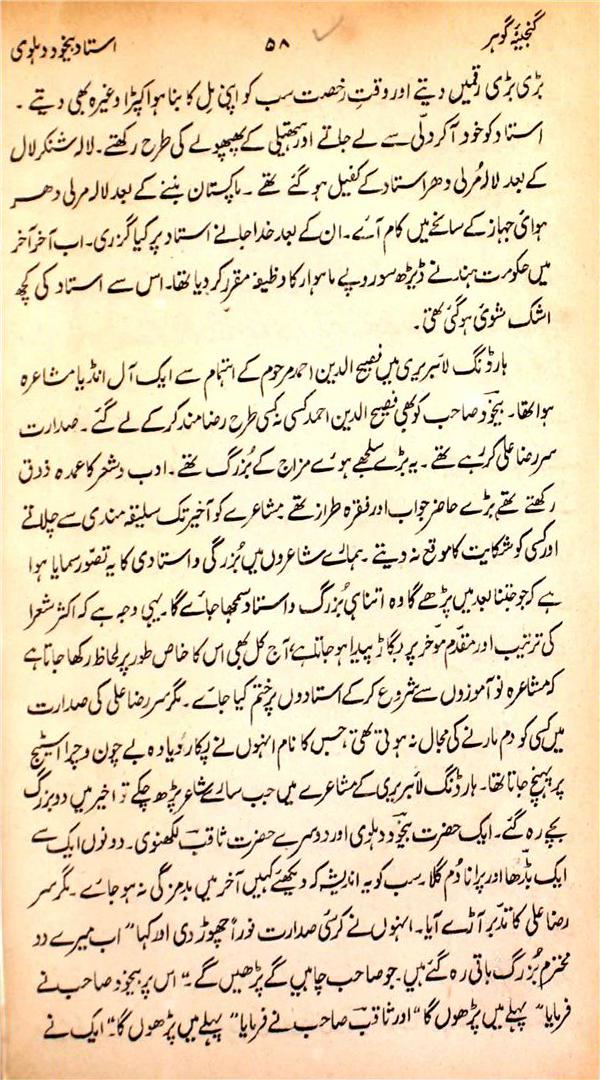 گنجینۂ گوہر ۵۸ استاد بیخود دہلوی
بڑی بڑی رقمیں دیتے اور وقتِ رخصت سب کو اپنی مِل کا بنا ہوا کپڑا وغیرہ بھی دیتے ۔
استاد کو خود آکر دلّی سے لے جاتے اور ہتھیلی کے پھپھولے کی طرح رکھتے۔ لالہ شنکر لال
کے بعد لالہ مُرلی دھر استاد کے کفیل ہو گئے تھے ۔ پاکستان بننے کے بعد لالہ مرلی دھر
ہوائی جہاز کے سانحے میں کام آئے۔ ان کے بعد خدا جانے استاد پر کیا گزری۔ اب آخر آخر
میں حکومت ہند نے ڈیڑھ سو روپے ماہوار کا وظیفہ مقرر کر دیا تھا۔ اس سے استاد کی کچھ
اشک شوئی ہو گئی تھی۔
ہارڈنگ لائبریری میں فصیح الدین احمد مرحوم کے اہتمام سے ایک آل انڈیا مشاعرہ
ہوا تھا۔ بیخودؔ صاحب کو بھی فصیح الدین احمد کسی نہ کسی طرح رضامند کر کے لے گئے ۔ صدارت
سر رضا علی کر رہے تھے ۔ یہ بڑے سلجھے ہوئے مزاج کے بُزرگ تھے ۔ ادب و شعر کا عمدہ ذوق
رکھتے تھے، بڑے حاضر جواب اور فقرہ طراز تھے مشاعرے کو آخیر تک سلیقہ مندی سے چلاتے
اور کسی کو شکایت کا موقع نہ دیتے ۔ ہمارے شاعروں میں بُزرگی و استادی کا یہ تصوّر سمایا ہوا
ہے کہ جو جتنا بعد میں پڑھے گا وہ اتنا ہی بُزرگ و استاد سمجھا جائے گا۔ یہی وجہ ہے کہ اکثر شعرا
کی ترتیب اور مقدّم موخر پر بگاڑ پیدا ہو جاتا ہے، آج کل بھی اس کا خاص طور پر لحاظ رکھا جاتا ہے
کہ مشاعرہ نوآموزوں سے شروع کر کے استادوں پر ختم کیا جائے ۔ مگر سر رضا علی کی صدارت
میں کسی کو دم مارنے کی مجال نہ ہوتی تھی، جس کا نام انہوں نے پکار دیا وہ بے چون و چرا اسٹیج
پر پہنچ جاتا تھا۔ ہارڈنگ لائبریری کے مشاعرے میں جب سارے شاعر پڑھ چکے تو اخیر میں دو بزرگ
بچے رہ گئے ۔ ایک حضرت بیخودؔ دہلوی اور دوسرے حضرت ثاقبؔ لکھنوی۔ دونوں ایک سے
ایک بڈّھا اور پرانا دُم گلا۔ سب کو یہ اندیشہ کہ دیکھئے کہیں آخر میں بدمزگی نہ ہو جائے ۔ مگر سر
رضا علی کا تدبّر آڑے آیا۔ انہوں نے کرسیٔ صدارت فوراً چھوڑ دی اور کہا "اب میرے دو
محترم بُزرگ باقی رہ گئے ہیں ۔ جو صاحب چاہیں گے پڑھیں گے ۔" اس پر بیخودؔ صاحب نے
فرمایا "پہلے میں پڑھوں گا" اور ثاقبؔ صاحب نے فرمایا "پہلے میں پڑھوں گا۔" ایک نے